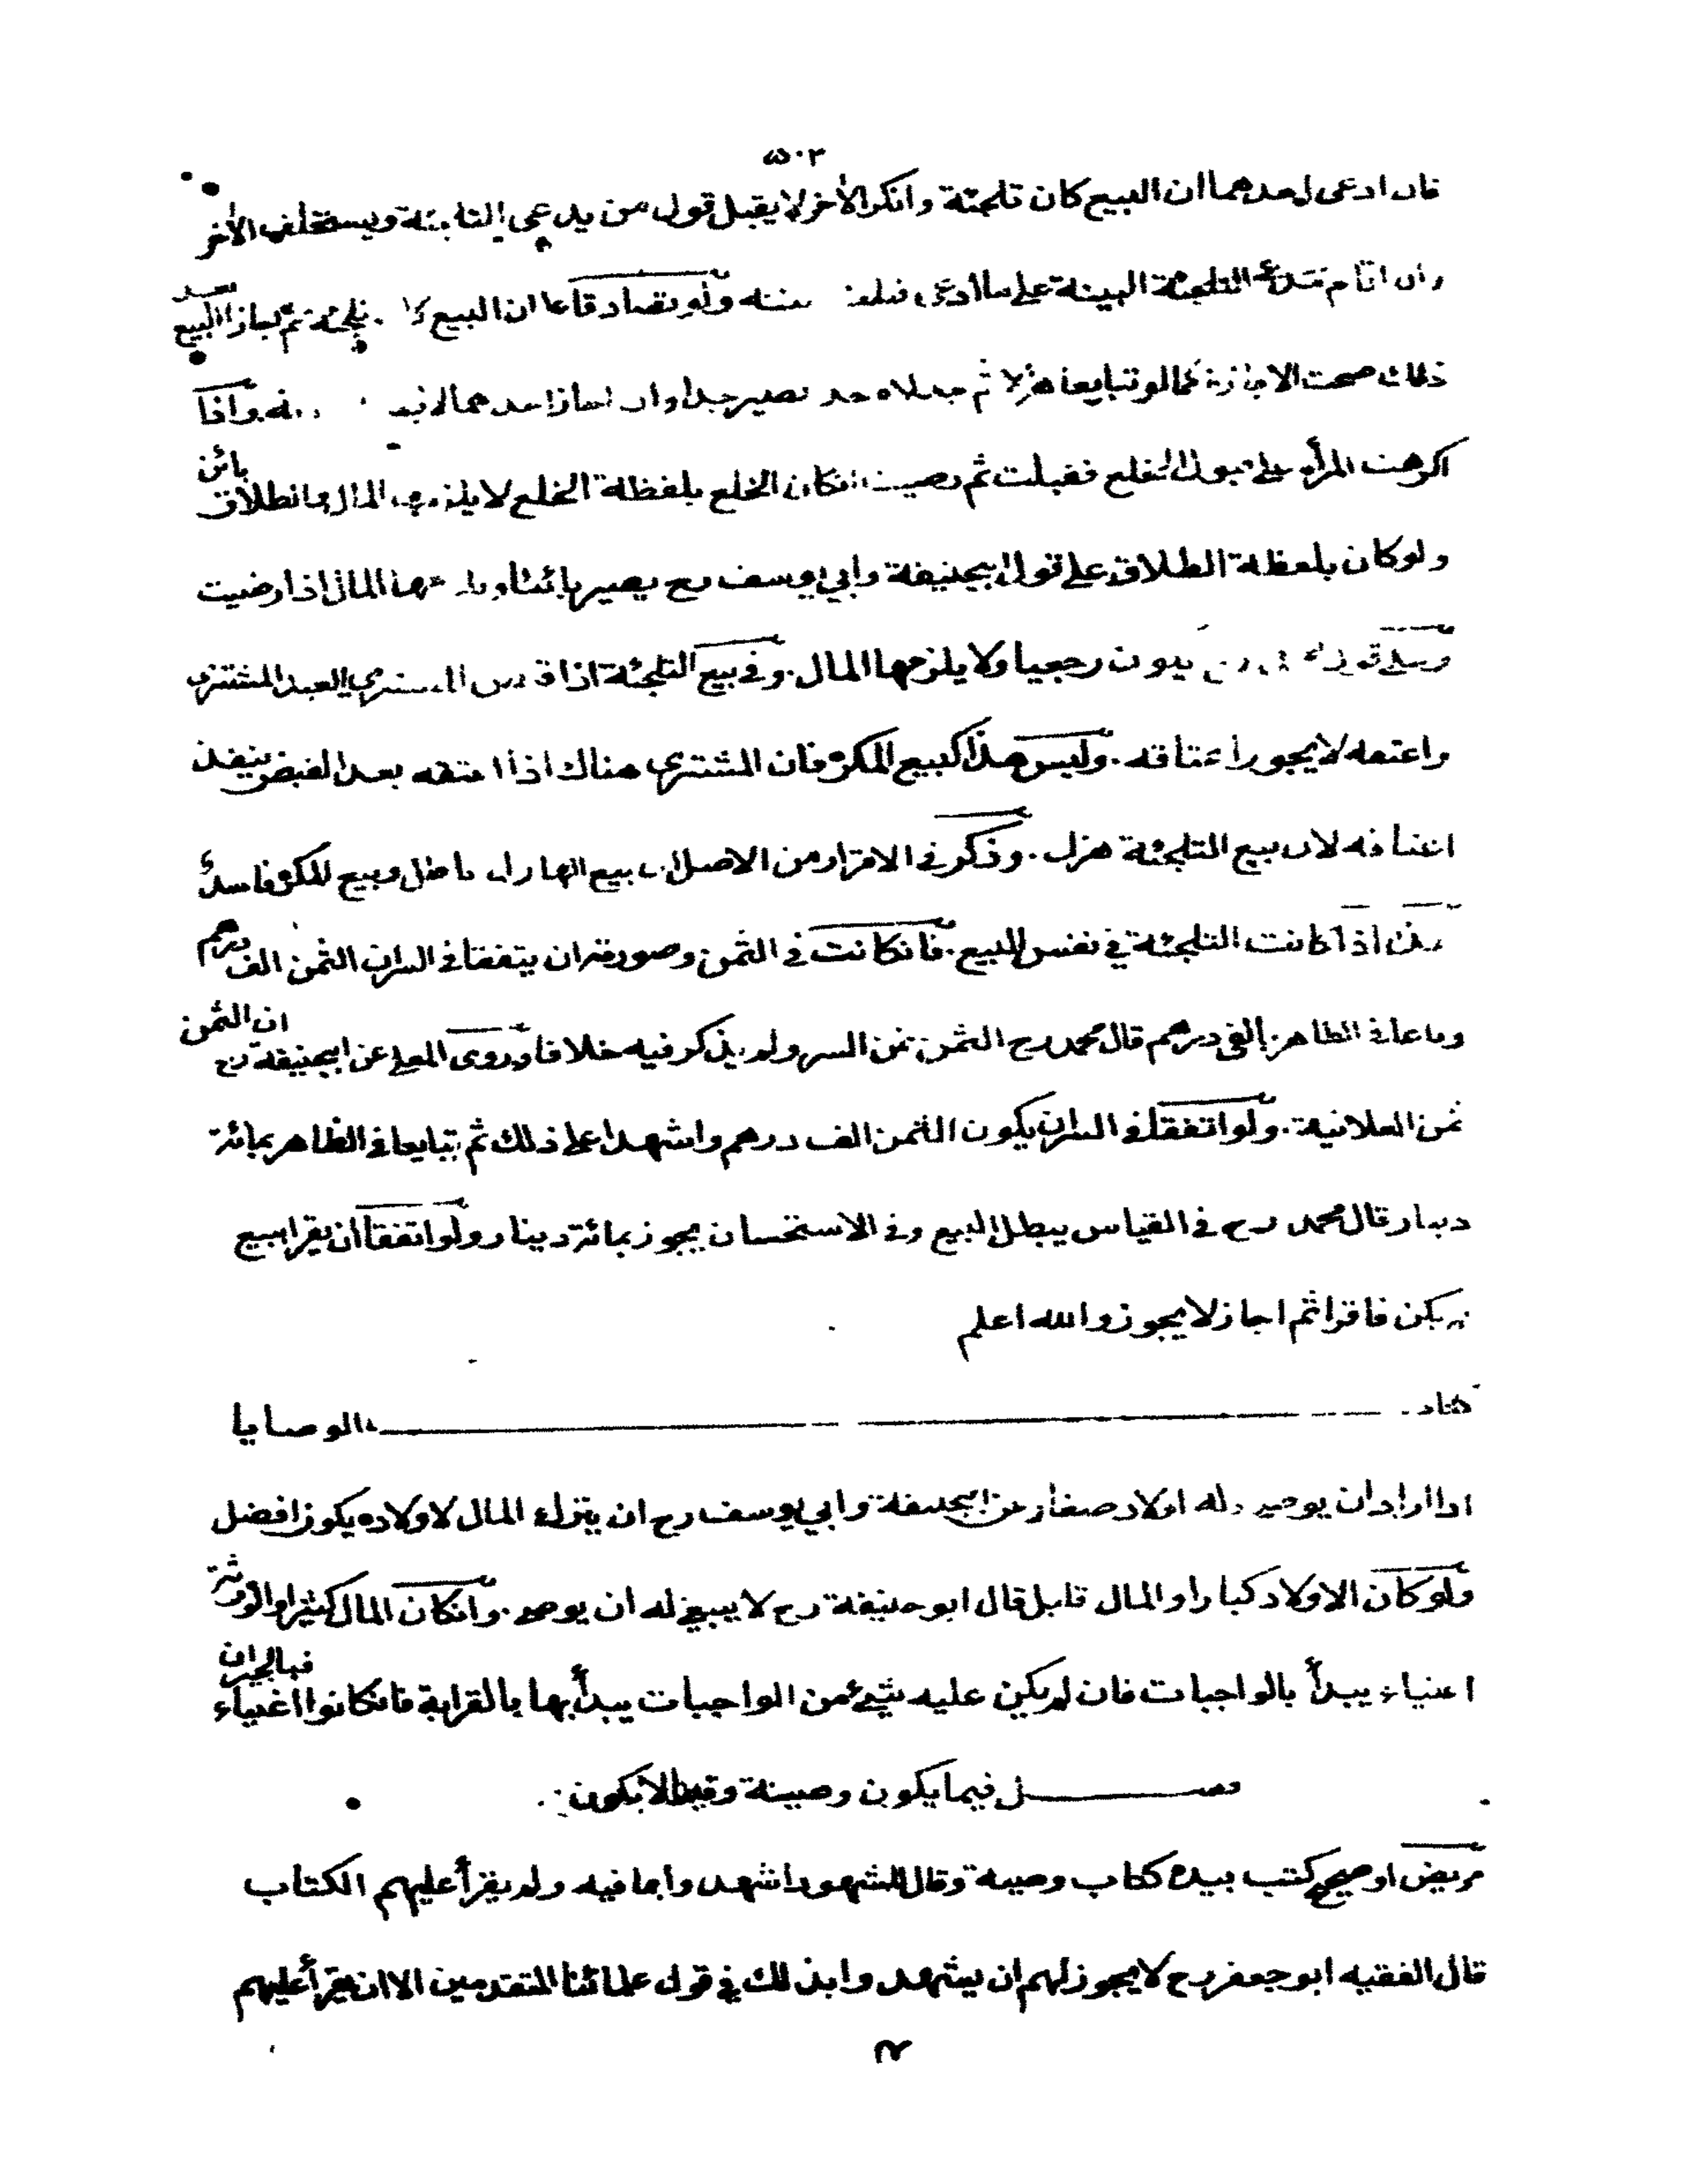 ٥٠٣
فان ادعى احدهما ان البيع كان تلجئة وانكر الأخر لا يقبل قول من يدعى التلجئة ويستحلف الأخر
وان اقام مدعى التلجئة البينة على ما ادعى قبلت بينته ولو تصادقا على ان البيع كان تلجئة ثم اجاز البيع بعد
ذلك صحت الاجازة كما لو تبايعا هزلا ثم جعلاه جدا يصير جدا وان اجاز احدهما لا واذا
اكرهت المرأة على قبول الخلع فقبلت ثم رضيت انكان الخلع بلفظة الخلع لا يلزمها المال والطلاق بائن
ولو كان بلفظة الطلاق على قول ابيحنيفة وابي يوسف رح يصير بائنا ويلزمها المال اذا رضيت
وعلى قول يكون رجعيا ولا يلزمها المال . وفي بيع التلجئة اذا قبض المشتري العبد المشترى
واعتقه لا يجوز اعتاقه . وليس هذا كبيع المكره فان المشتري هناك اذا اعتقه بعد القبض ينفذ
اعتاقه لان بيع التلجئة هزل . وذكر في الاقرار من الاصل ان بيع الهازل باطل وبيع المكره فاسد
هذا اذا كانت التلجئة في نفس البيع . فانكانت في الثمن وصورته ان يتفقا في السر ان الثمن الف درهم
وباعا في الظاهر بالفي درهم قال محمد رح الثمن ثمن السر ولم يذكر فيه خلافا وروى المعلى عن ابيحنيفة رح ان الثمن
ثمن العلانية . ولو اتفقا في السر ان يكون الثمن الف درهم واشهدا على ذلك ثم تبايعا في الظاهر بمائة
دينار قال محمد رح في القياس يبطل البيع وفي الاستحسان يجوز بمائة دينار ولو اتفقا ان يقرا ببيع
لم يكن فاقرا ثم اجاز لا يجوز والله اعلم
كتاب الوصايا
اذا اراد ان يوصي وله اولاد صغار عن ابيحنيفة وابي يوسف رح ان يترك المال لاولاده يكون افضل
ولو كان الاولاد كبارا والمال قليل قال ابو حنيفة رح لا ينبغي له ان يوصي . وانكان المال كثيرا والورثة
اغنياء يبدأ بالواجبات فان لم يكن عليه شيء من الواجبات يبدأ بها بالقرابة فانكانوا اغنياء فبالجيران
فصل فيما يكون وصية وفيما لا يكون
مريض او صحيح كتب بيده كتاب وصية وقال للشهود اشهدوا بما فيه ولم يقرأ عليهم الكتاب
قال الفقيه ابو جعفر رح لا يجوز لهم ان يشهدوا بذلك في قول علمائنا المتقدمين الا ان يقرأ عليهم